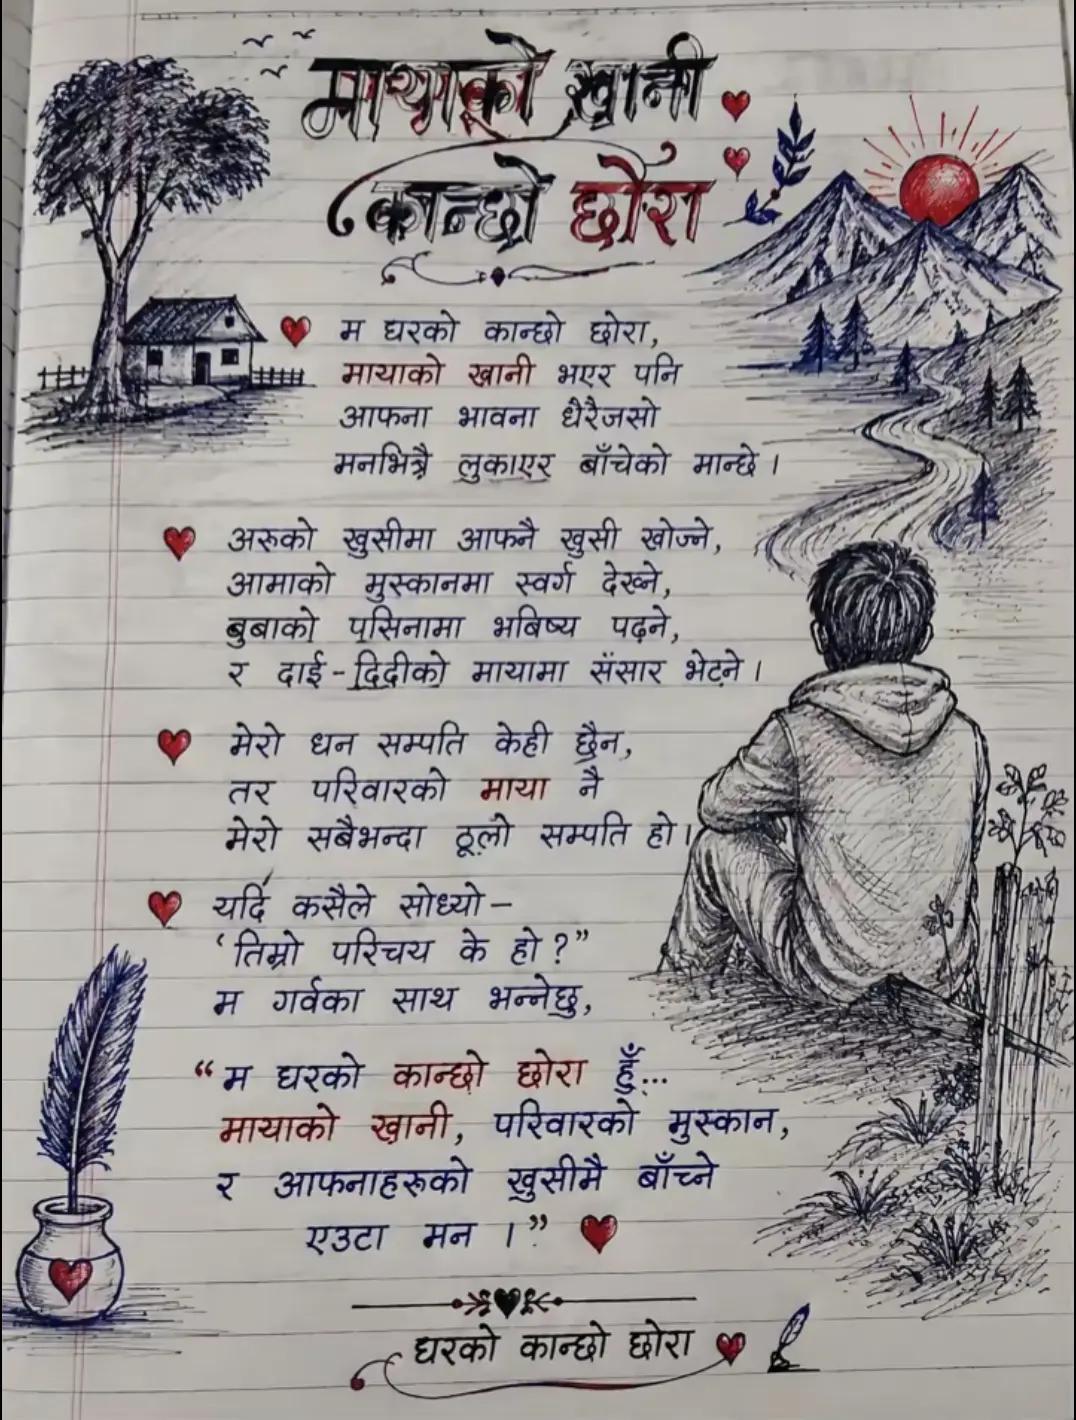 मायाको खानी
कान्छो छोरा
म घरको कान्छो छोरा,
मायाको खानी भएर पनि
आफना भावना धेरैजसो
मनभित्रै लुकाएर बाँचेको मान्छे ।
अरुको खुसीमा आफनै खुसी खोज्ने,
आमाको मुस्कानमा स्वर्ग देख्ने,
बुबाको पसिनामा भबिष्य पढ्ने,
र दाई-दिदीको मायामा संसार भेट्ने ।
मेरो धन सम्पति केही छैन,
तर परिवारको माया नै
मेरो सबैभन्दा ठूलो सम्पति हो ।
यदि कसैले सोध्यो-
‘तिम्रो परिचय के हो ?”
म गर्वका साथ भन्नेछु,
“म घरको कान्छो छोरा हुँ...
मायाको खानी, परिवारको मुस्कान,
र आफनाहरूको खुसीमै बाँच्ने
एउटा मन ।”
घरको कान्छो छोरा